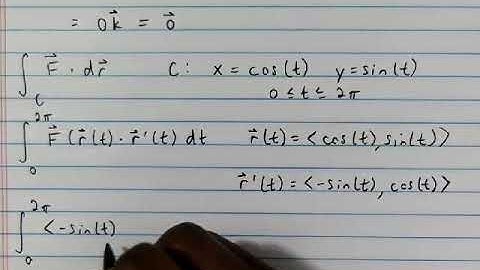 = 0k⃗ = 0⃗
∫_C F⃗ · dr⃗ C: x = cos(t) y = sin(t)
0 ≤ t ≤ 2π
∫_0^{2π} F⃗(r⃗(t) · r⃗'(t) dt r⃗(t) = <cos(t), sin(t)>
r⃗'(t) = <-sin(t), cos(t)>
∫_0^{2π} <-sin(t)